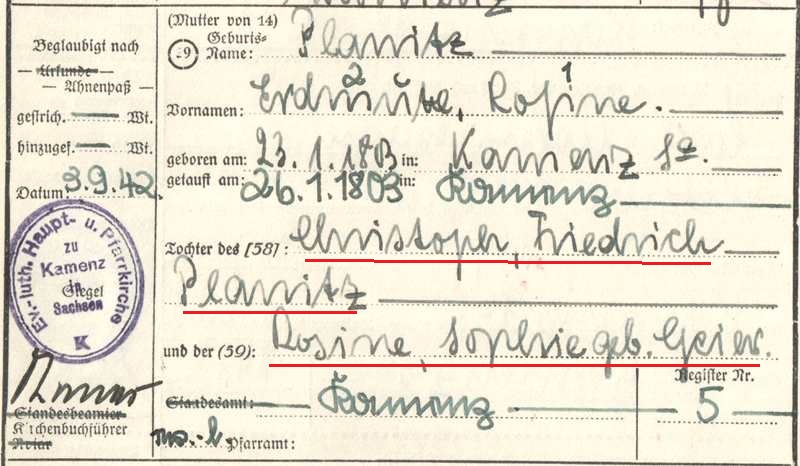 (Mutter von 14)
29 Geburts-Name: Planitz
Vornamen: Erdmute, Rosine.
2 1
geboren am: 23.1.1803 in: Kamenz Sa.
getauft am: 26.1.1803 in: Kamenz
Tochter des [58]: Christoph, Friedrich
Planitz
und der (59): Rosine, Sophie geb. Geier.
Standesamt: Kamenz
Register Nr. 5
Pfarramt:
Beglaubigt nach
— Urkunde —
— Ahnenpaß —
gestrich. — Wt.
hinzugef. — Wt.
Datum: 3.9.42.
Ev.-luth. Haupt- u. Pfarrkirche
zu
Kamenz
in
Siegel
Sachsen
K
Standesbeamter
Kirchenbuchführer
Notar